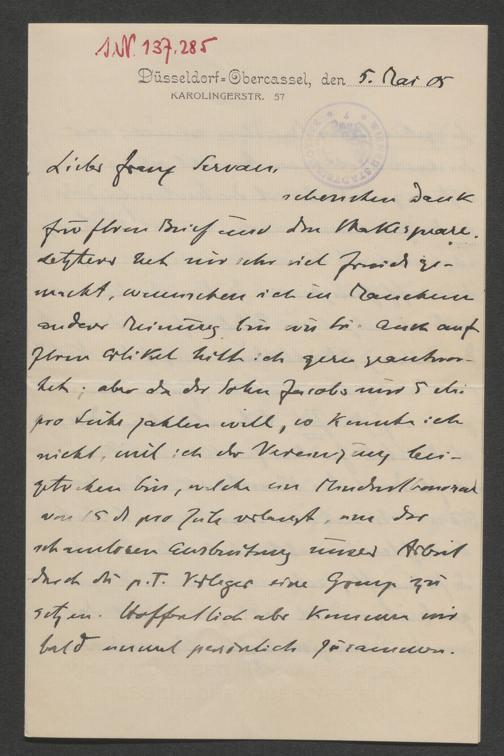 I.N. 137.285
Düsseldorf-Obercassel, den 5. Mai 05
KAROLINGERSTR. 57
Lieber Franz Servaes,
schönsten Dank
für Ihren Brief und den Shakespeare.
Letzterer hat mir sehr viel Freude ge-
macht, wennschon ich in Manchem
anderer Meinung bin wie Sie. Auch auf
Ihren Artikel hätte ich gern geantwor-
tet; aber da der Sohn Jacobs nur 5
pro Seite zahlen will, so konnte ich
nicht, weil ich der Vereinigung bei-
getreten bin, welche ein Minimalhonorar
von 15 pro Zeile verlangt, um der
schamlosen Ausbeutung unserer Arbeit
durch die p.T. Verleger eine Grenze zu
setzen. Hoffentlich aber kommen wir
bald einmal persönlich zusammen.